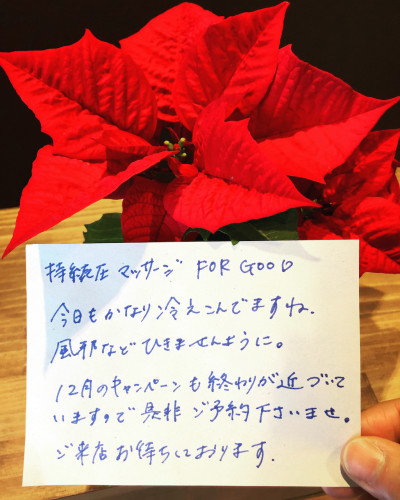 持続圧 マッサージ FOR GOOD
今日もかなり冷えこんでますね.
風邪などひきませんように。
12月のキャンペーンも終わりが近づいて
いますので是非ご予約下さいませ。
ご来店お待ちしております.